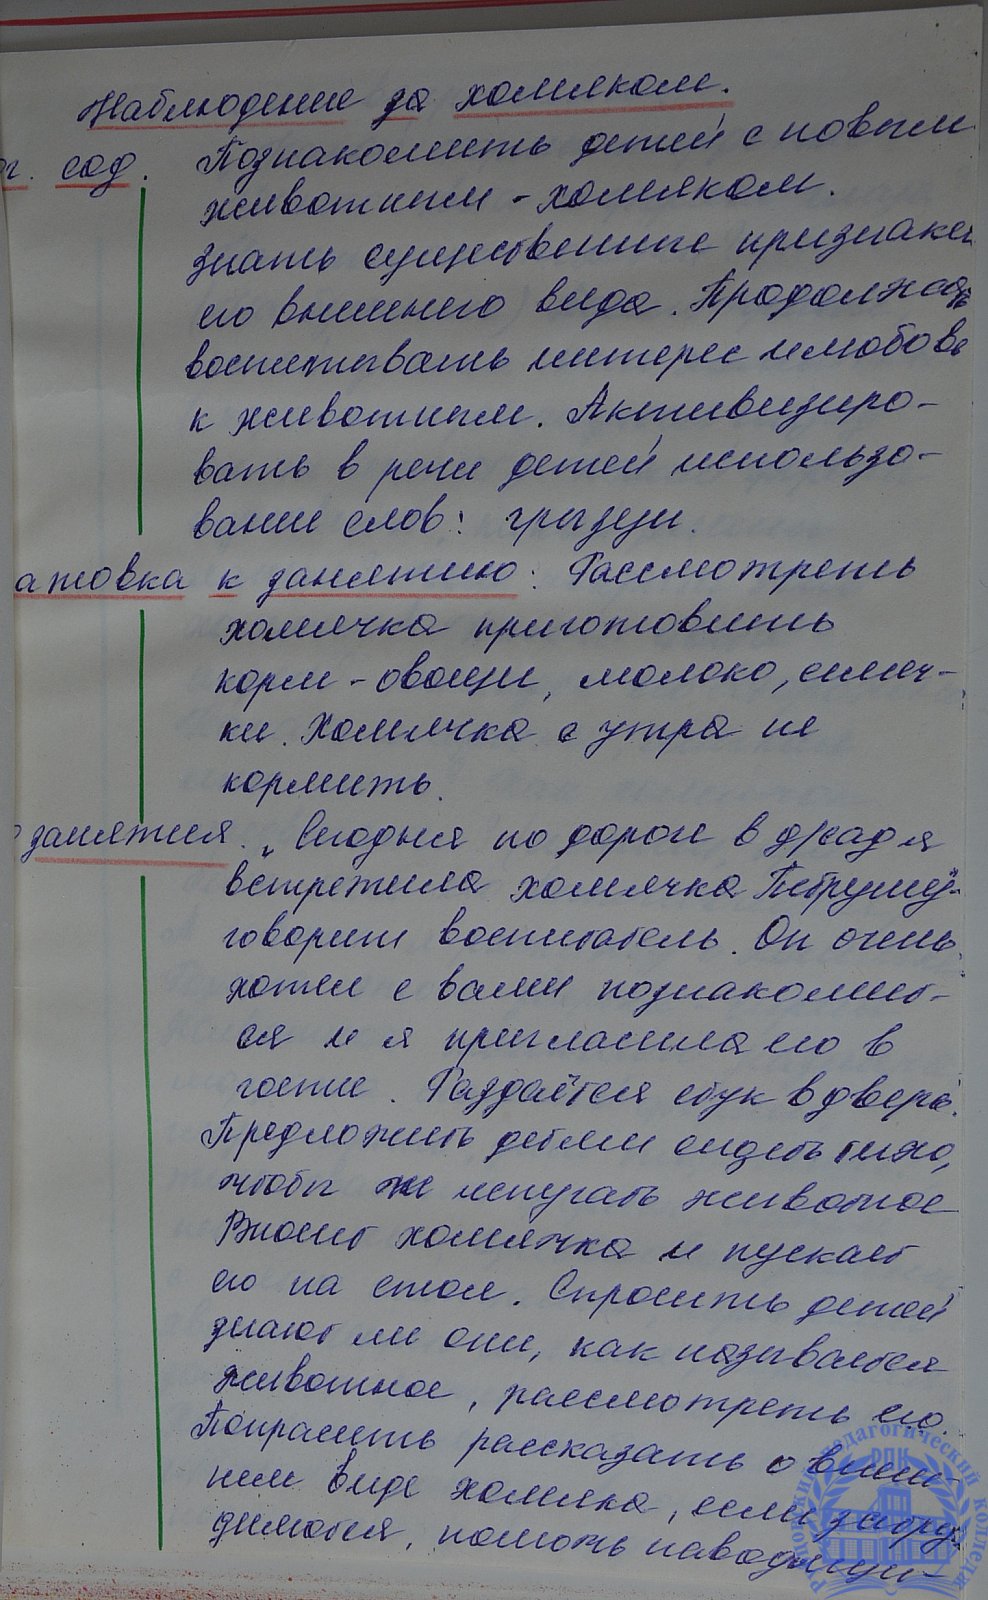 Наблюдение за хомяком.
ог. сод. Познакомить детей с новым
животным - хомяком.
Знать существенные признаки
его внешнего вида. Продолжать
воспитывать интерес и любовь
к животным. Активизиро-
вать в речи детей использо-
вание слов: грызун.
отовка к занятию: Рассмотреть
хомячка приготовить
корм - овощи, молоко, семеч-
ки. Хомячка с утра не
кормить.
занятия. „Сегодня по дороге в д/сад я
встретила хомячка Петрушу-
говорит воспитатель. Он очень
хотел с вами познакомит-
ся и я пригласила его в
гости. Раздаётся стук в дверь.
Предложить детям сидеть тихо,
чтобы не испугать животное
Вносит хомячка и пускает
его на стол. Спросить детей
знают ли они, как называется
животное, рассмотреть его.
Попросить рассказать о внеш-
нем виде хомяка, если затруд
димотся, помочь наводящи-
педагогический колледж
РПК